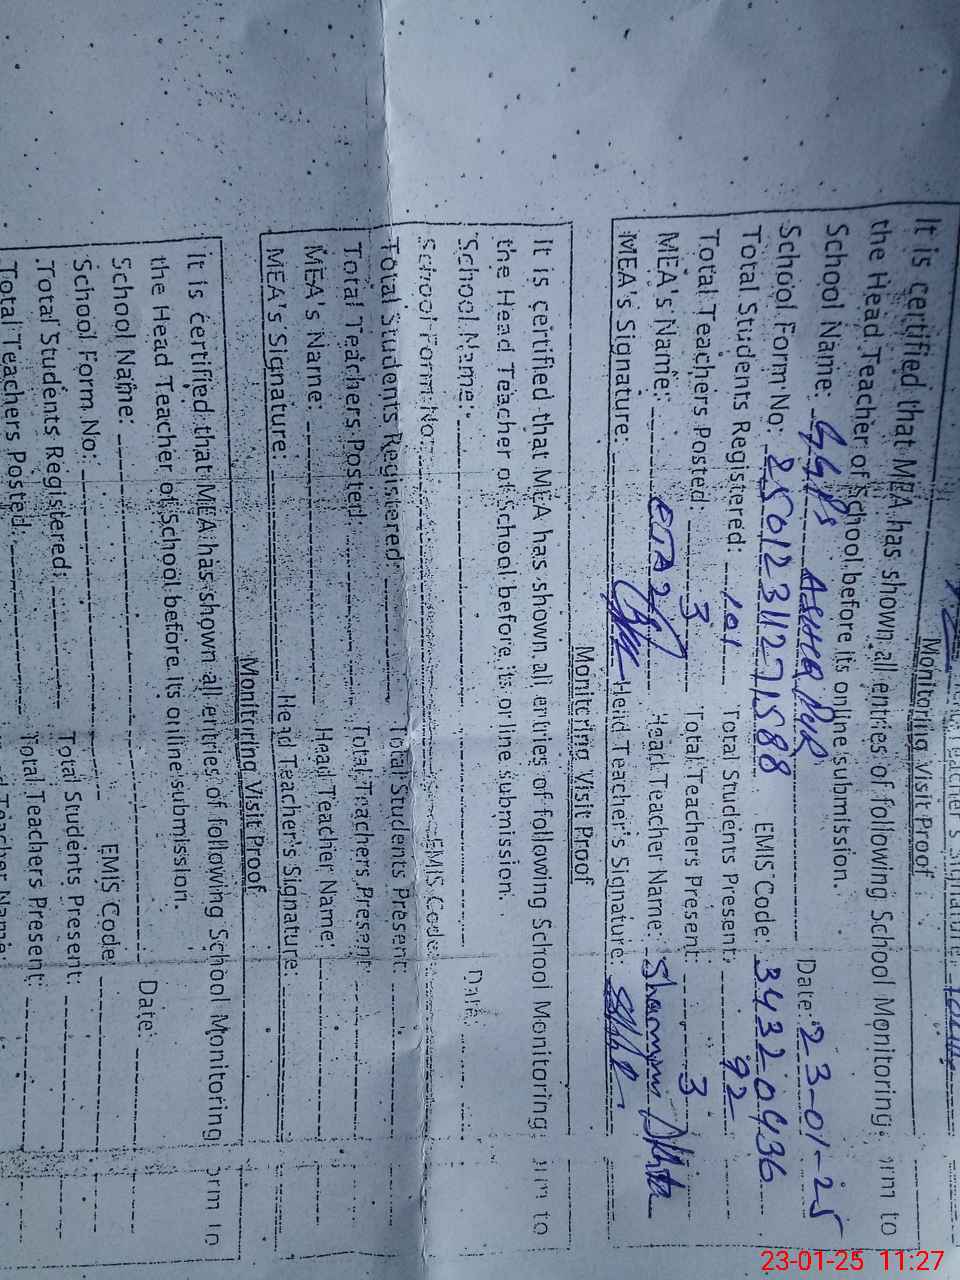 Monitoring Visit Proof
It is certified that MEA has shown all entries of following School Monitoring orm to
the Head Teacher of School before its online submission.
School Name: GGPS ASHRAPUR Date: 23-01-25
School Form No: 25012311271588 EMIS Code: 34320436
Total Students Registered: 101 Total Students Present: 92
Total Teachers Posted: 3 Total Teachers Present: 3
MEA's Name: Head Teacher Name: Shamim Akhtar
MEA's Signature: Head Teacher's Signature:
Monitoring Visit Proof
It is certified that MEA has shown all entries of following School Monitoring orm to
the Head Teacher of School before its online submission.
School Name: Date:
School Form No: EMIS Code:
Total Students Registered: Total Students Present:
Total Teachers Posted: Total Teachers Present:
MEA's Name: Head Teacher Name:
MEA's Signature: Head Teacher's Signature:
Monitoring Visit Proof
it is certified that MEA has shown all entries of following School Monitoring orm to
the Head Teacher of School before its online submission.
School Name: Date:
School Form No: EMIS Code:
Total Students Registered: Total Students Present:
Total Teachers Posted: Total Teachers Present:
23-01-25 11:27